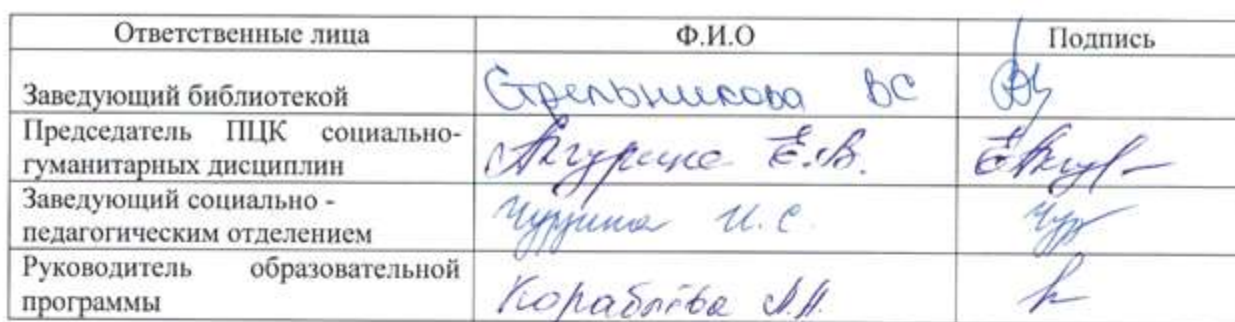 Ответственные лица Ф.И.О Подпись
Заведующий библиотекой Стрельникова ВС
Председатель ПЦК социально-
гуманитарных дисциплин Е.В.
Заведующий социально -
педагогическим отделением И.С.
Руководитель образовательной
программы Кораблёва А.А.